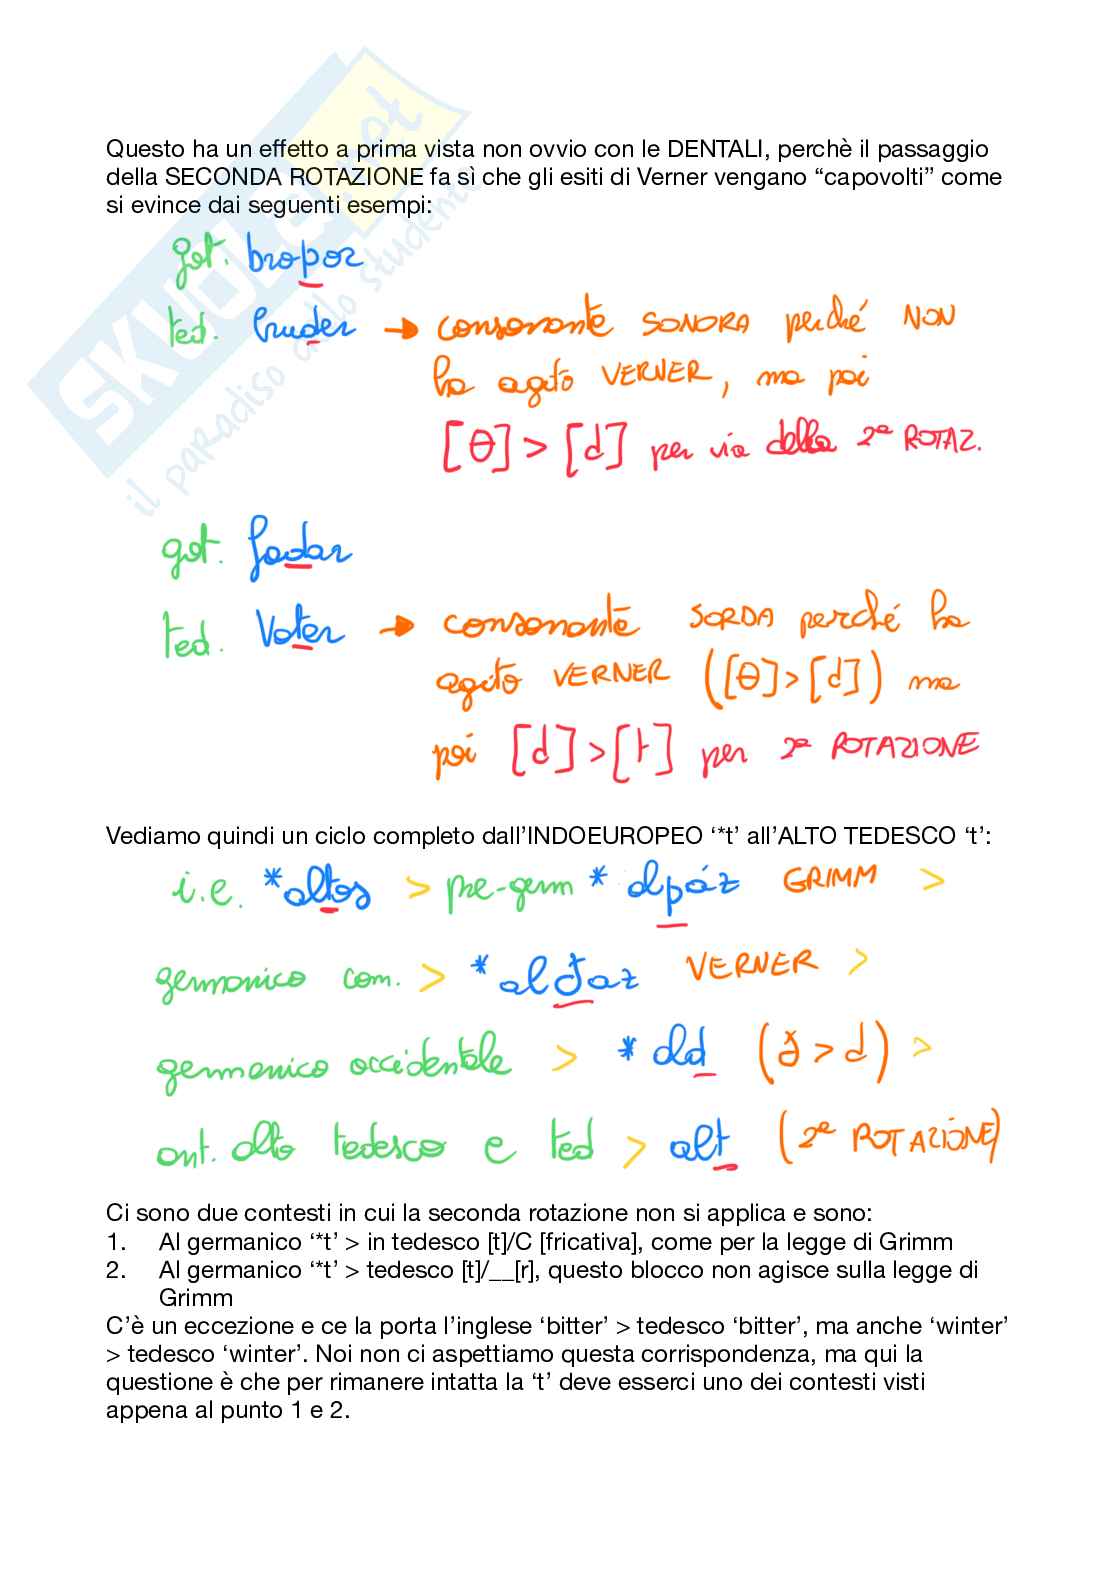 SKUOLA.net
il paradiso dello studente
Questo ha un effetto a prima vista non ovvio con le DENTALI, perchè il passaggio
della SECONDA ROTAZIONE fa sì che gli esiti di Verner vengano “capovolti” come
si evince dai seguenti esempi:
got. broþar
ted. bruder → consonante SONORA perché NON
ha agito VERNER, ma poi
[θ] > [d] per via della 2ª ROTAZ.
got. fadar
ted. Vater → consonante SORDA perché ha
agito VERNER ([θ] > [d]) ma
poi [d] > [t] per 2ª ROTAZIONE
Vediamo quindi un ciclo completo dall’INDOEUROPEO ‘*t’ all’ALTO TEDESCO ‘t’:
i.e. *altos > pre-germ *alþáz GRIMM >
germanico com. > *alđaz VERNER >
germanico occidentale > *ald (đ > d) >
ant. alto tedesco e ted > alt (2ª ROTAZIONE)
Ci sono due contesti in cui la seconda rotazione non si applica e sono:
1. Al germanico ‘*t’ > in tedesco [t]/C [fricativa], come per la legge di Grimm
2. Al germanico ‘*t’ > tedesco [t]/__[r], questo blocco non agisce sulla legge di
Grimm
C’è un eccezione e ce la porta l’inglese ‘bitter’ > tedesco ‘bitter’, ma anche ‘winter’
> tedesco ‘winter’. Noi non ci aspettiamo questa corrispondenza, ma qui la
questione è che per rimanere intatta la ‘t’ deve esserci uno dei contesti visti
appena al punto 1 e 2.